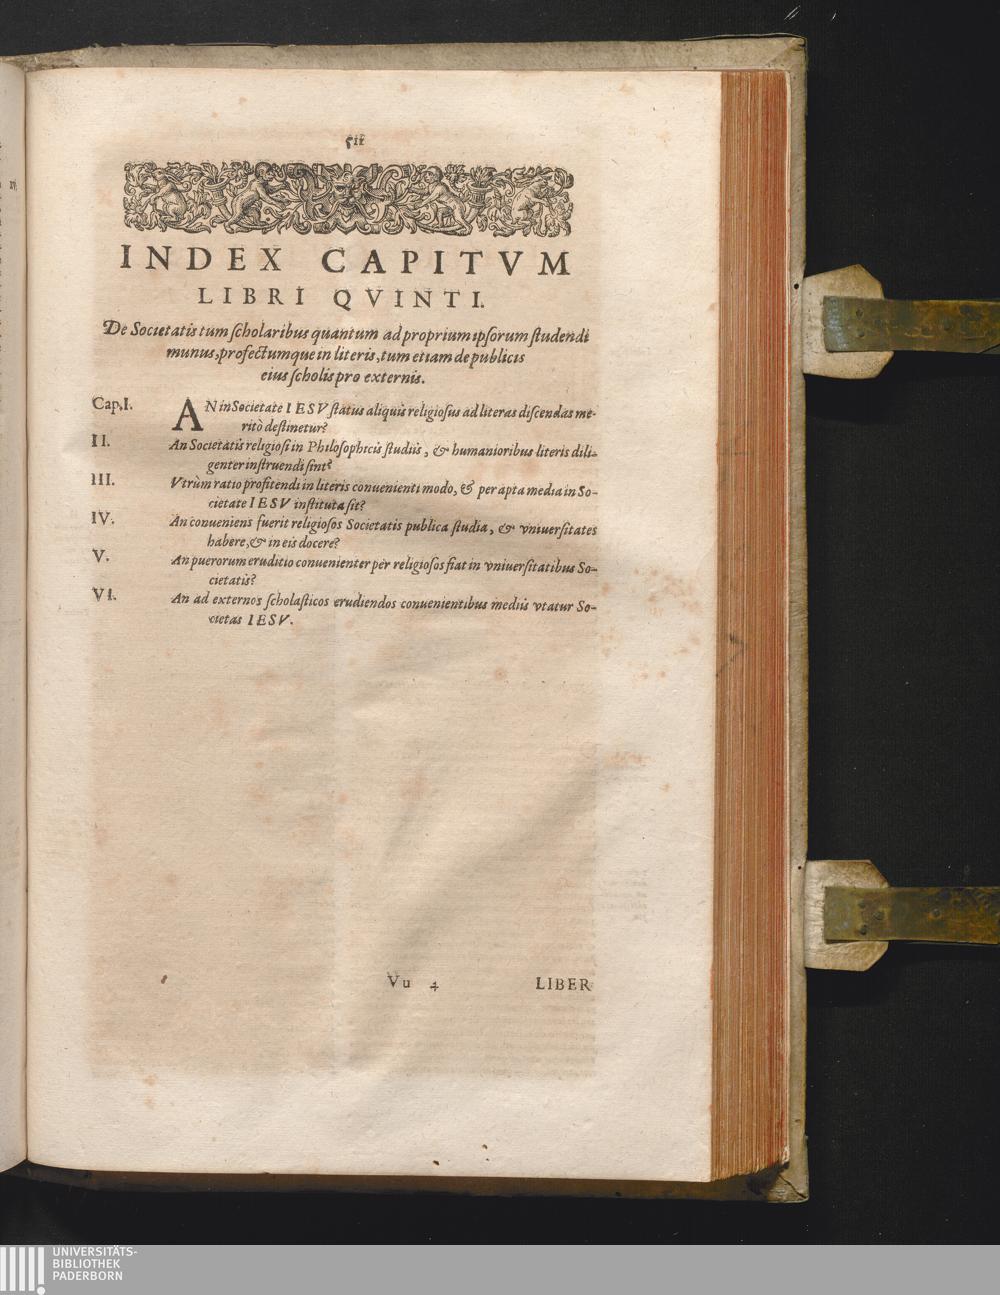 511
INDEX CAPITVM
LIBRI QVINTI.
De Societatis tum scholaribus quantum ad proprium ipsorum studendi
munus, profectumque in literis, tum etiam de publicis
eius scholis pro externis.
Cap. I. AN in Societate IESV status aliquis religiosus ad literas discendas me-
ritò destinetur?
II. An Societatis religiosi in Philosophicis studiis, & humanioribus literis dili-
genter instruendi sint?
III. Vtrùm ratio profitendi in literis conuenienti modo, & per apta media in So-
cietate IESV instituta sit?
IV. An conueniens fuerit religiosos Societatis publica studia, & vniuersitates
habere, & in eis docere?
V. An puerorum eruditio conuenienter per religiosos fiat in vniuersitatibus So-
cietatis?
VI. An ad externos scholasticos erudiendos conuenientibus mediis vtatur So-
cietas IESV.
Vu 4 LIBER
UNIVERSITÄTS-
BIBLIOTHEK
PADERBORN